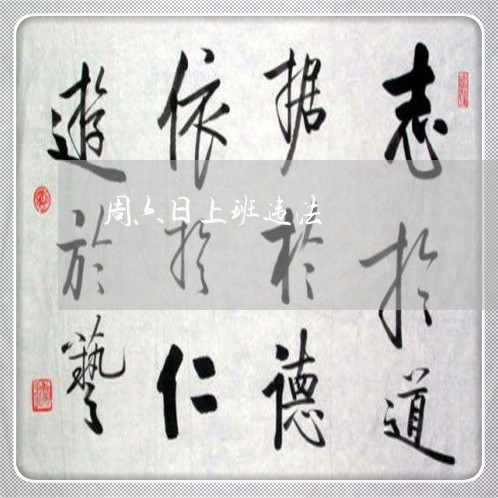 志於道
据於德
依於仁
遊於藝
周六日上班违法